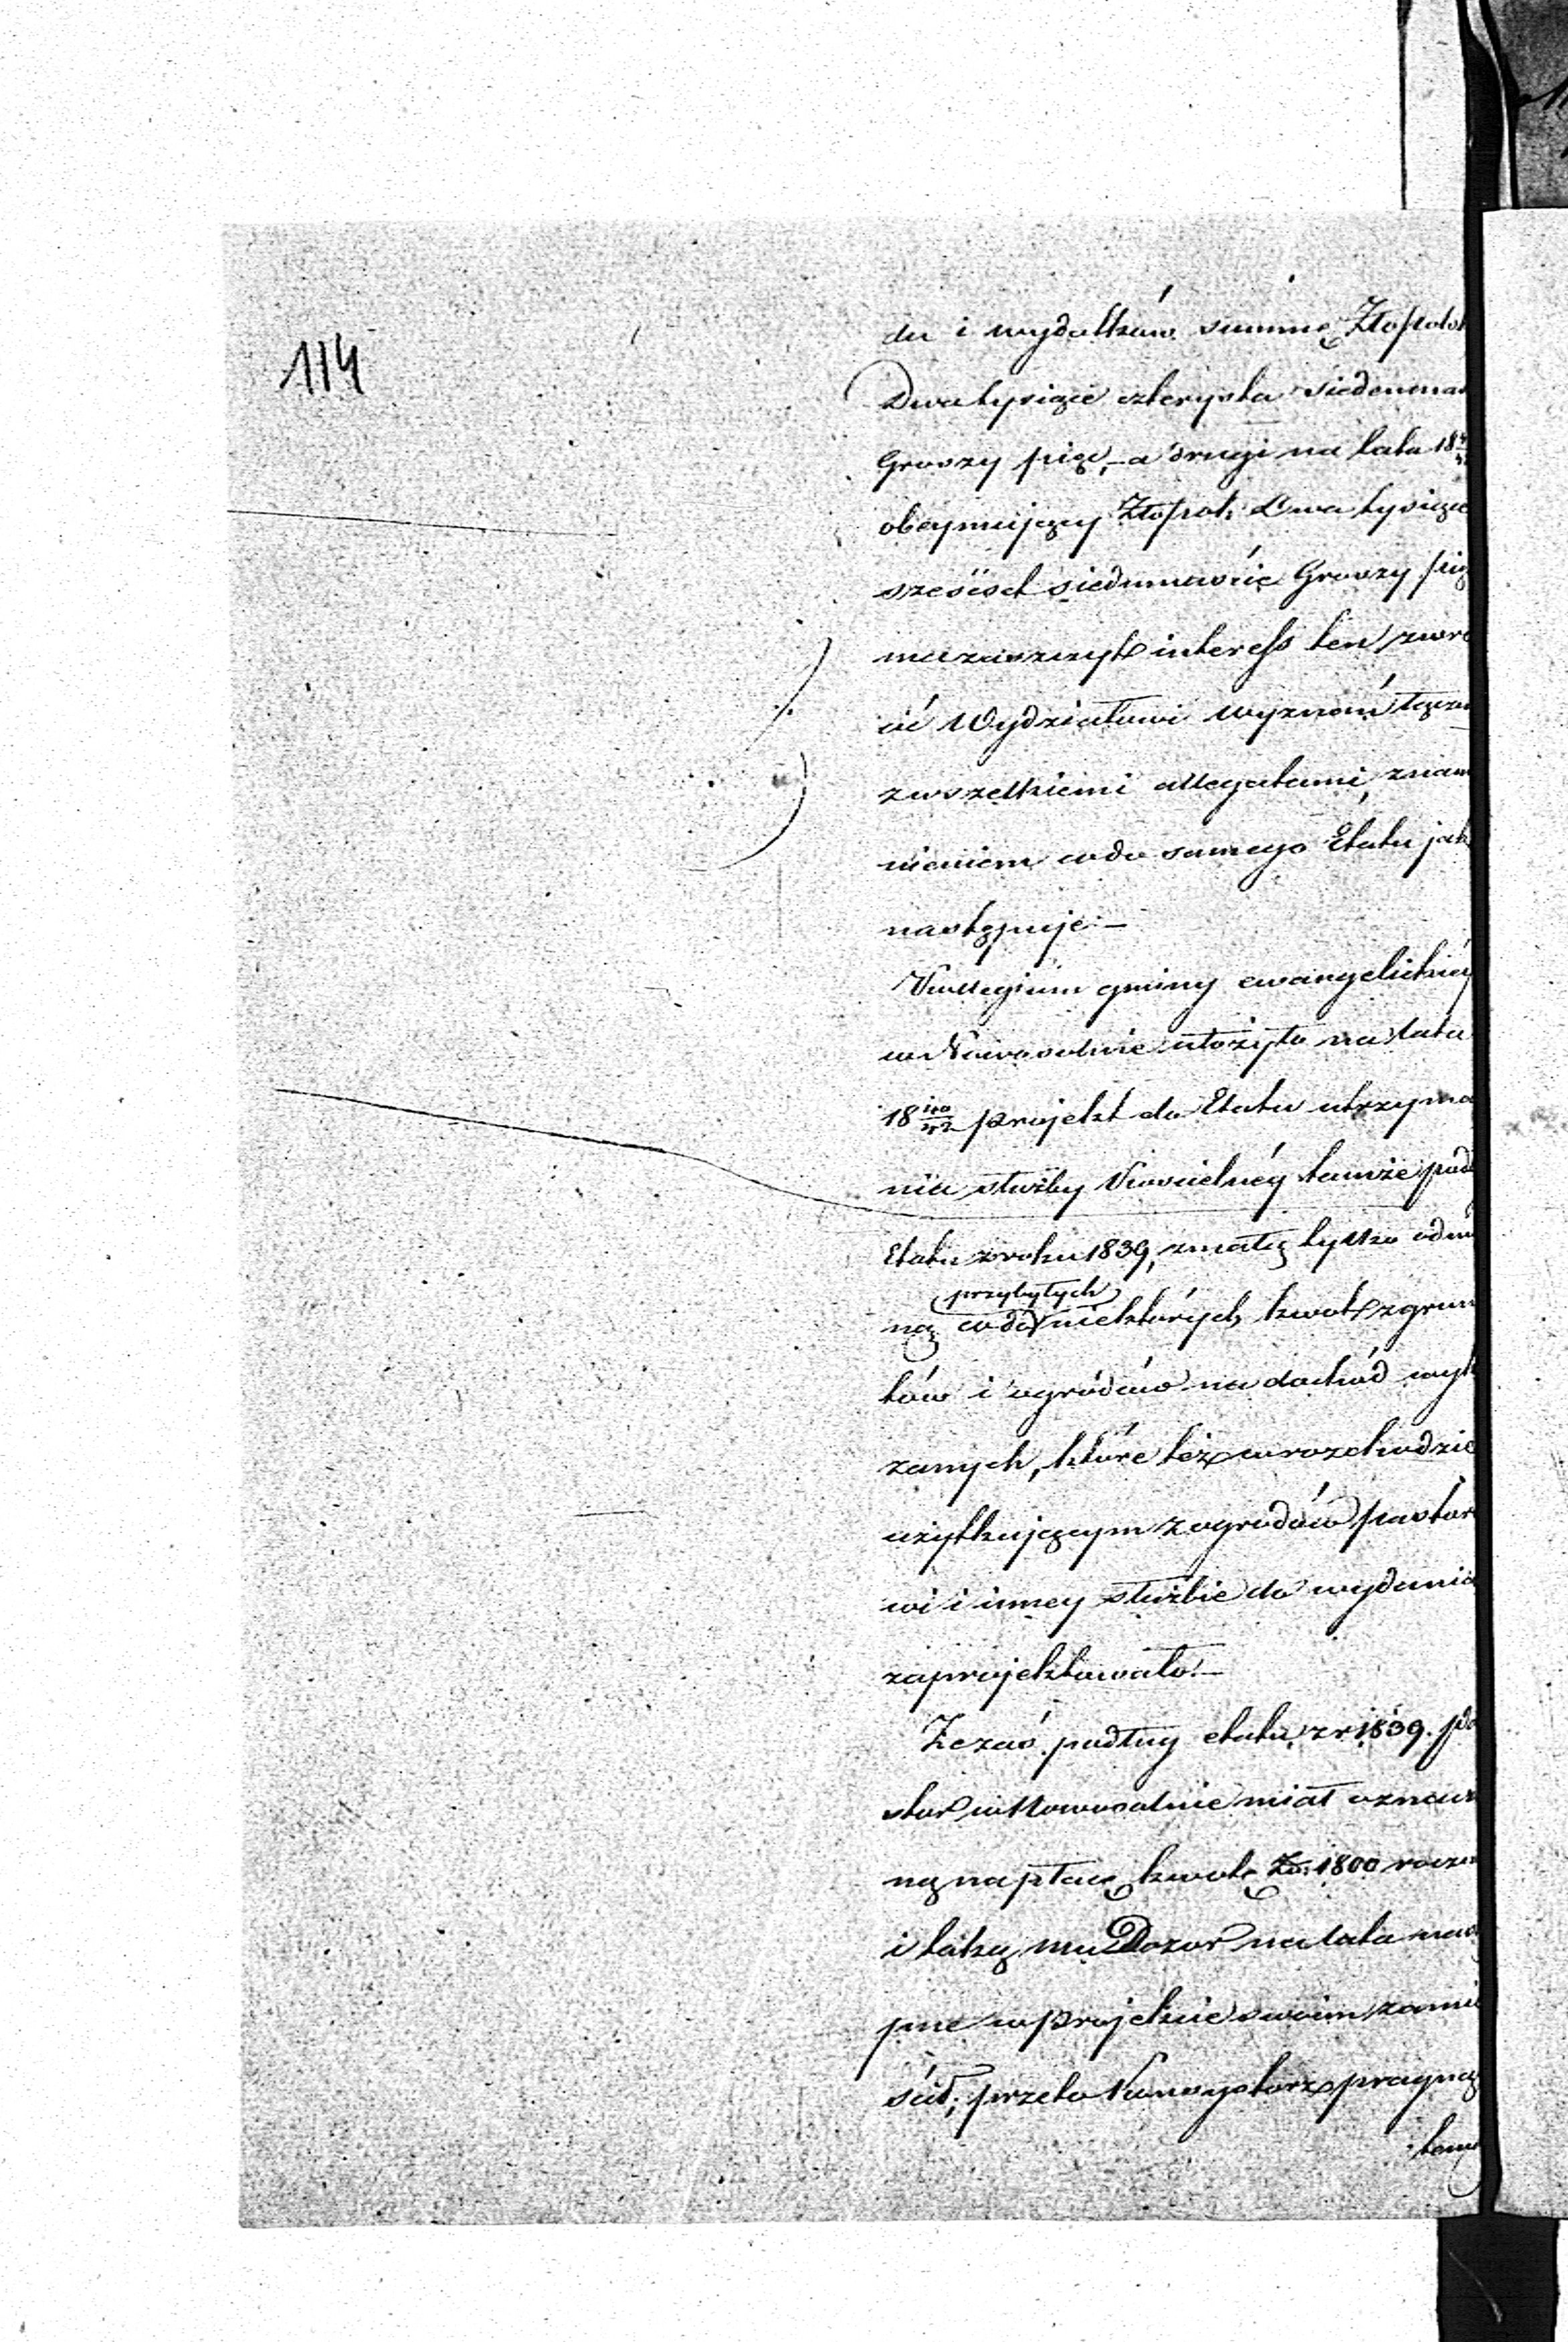 114
du i wydatków summę Złopolsk
Dwa tysiące czterysta siedemna
Groszy pięć, – a drugi na lata 18
obeymujący Złopol: Dwa tysiące
sześćset siedmnaście Groszy pię
ma zaszczyt interess ten zwró
cić Wydziałowi wyznań łączn
z wszelkiemi allegatami, z nam
nieniem co do samego Etatu jak
następuje: –
Kollegium gminy ewangelickiéy
w Nowosolnie ułożyło na lata
18 40/42 projekt do Etatu utrzyma
nia służby Kościelnéy tamże podł
Etatu z roku 1839, z małą tylko odmi
przybyłych
ną co do niektórych kwot z grun
tów i ogrodów na dochód wyk
zanych, które też w rozchodzie
użytkującym z ogrodów pastoro
wi i inney służbie do wydania
zaprojektowało. –
Że zaś podług etatu z r 1839. pa
stor w Nowosolnie miał oznacz
ną na płacę kwotę Zł: 1800 roczn
i taką mu Dozor na lata nas
pne w projekcie swoim zamie
ścił; przeto Konsystorz pragnąc